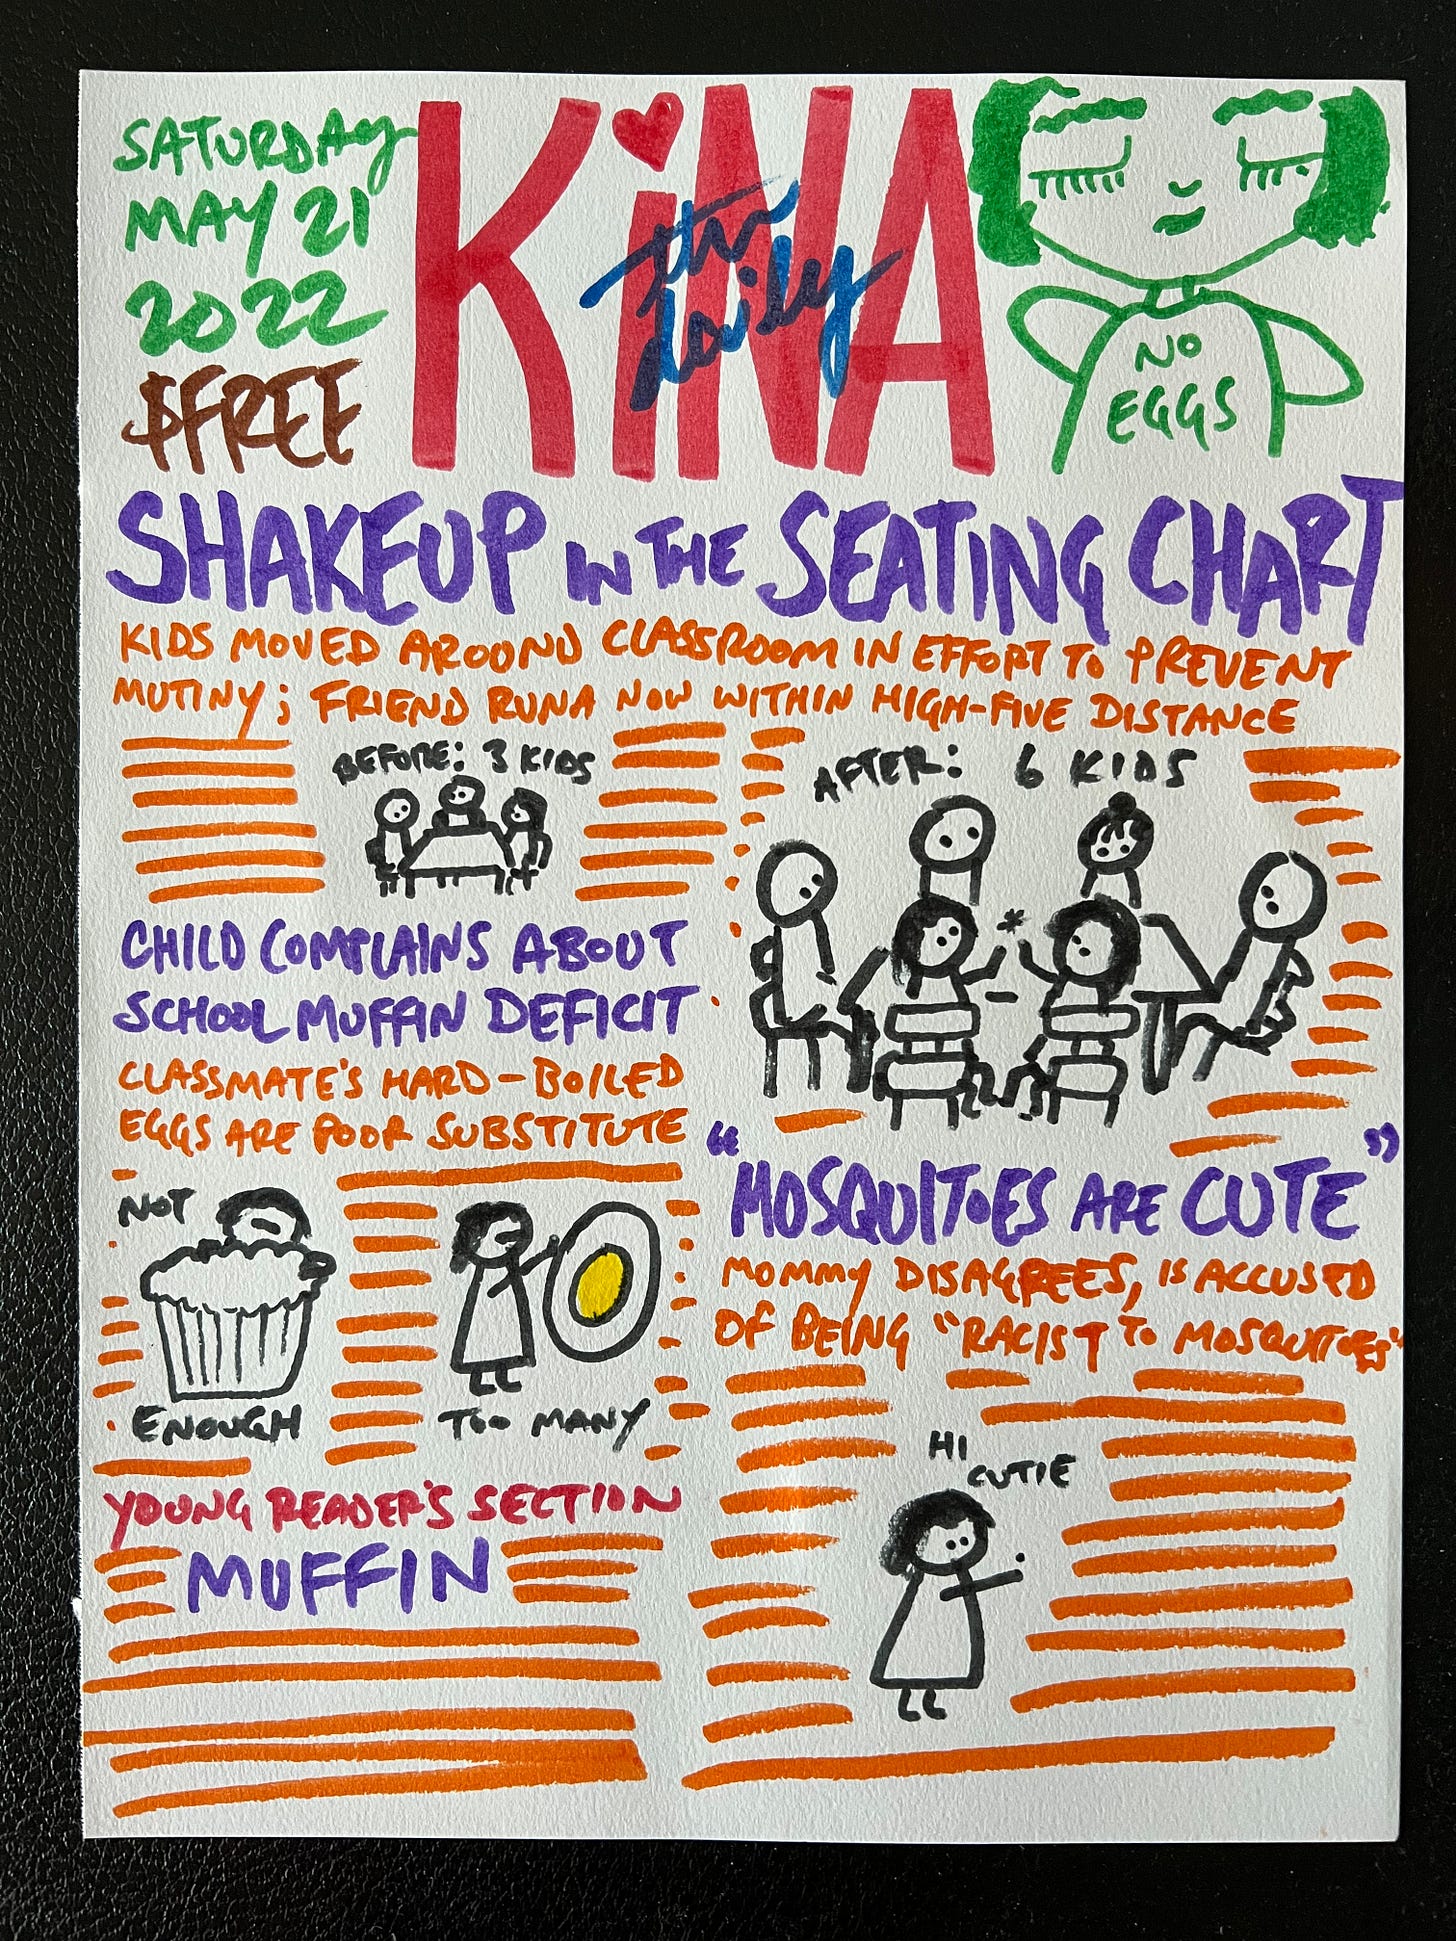 SATURDAY
MAY 21
2022
$FREE
KiNA
the
daily
NO
EGGS
SHAKEUP IN THE SEATING CHART
KIDS MOVED AROUND CLASSROOM IN EFFORT TO PREVENT
MUTINY; FRIEND RUNA NOW WITHIN HIGH-FIVE DISTANCE
BEFORE: 3 KIDS
AFTER: 6 KIDS
CHILD COMPLAINS ABOUT
SCHOOL MUFFIN DEFICIT
CLASSMATE'S HARD-BOILED
EGGS ARE POOR SUBSTITUTE
NOT
ENOUGH
TOO MANY
"MOSQUITOES ARE CUTE"
MOMMY DISAGREES, IS ACCUSED
OF BEING "RACIST TO MOSQUITOES"
HI
CUTIE
YOUNG READER'S SECTION
MUFFIN